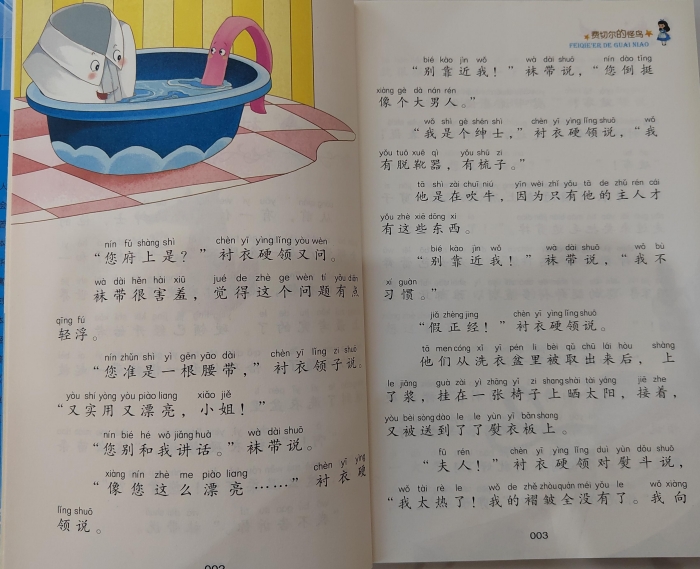 nín fǔ shàng shì chèn yī yìng lǐng yòu wèn
“您府上是？” 衬衣硬领又问。
wà dài hěn hài xiū jué de zhè ge wèn tí yǒu diǎn
袜带很害羞，觉得这个问题有点
qīng fú
轻浮。
nín zhǔn shì yì gēn yāo dài chèn yī lǐng zi shuō
“您准是一根腰带，” 衬衣领子说，
yòu shí yòng yòu piào liang xiǎo jiě
“又实用又漂亮，小姐！”
nín bié hé wǒ jiǎng huà wà dài shuō
“您别和我讲话。” 袜带说。
xiàng nín zhè me piào liang chèn yī yìng
“像您这么漂亮……” 衬衣硬
lǐng shuō
领说。
002
费切尔的怪鸟
FEIQIE'ER DE GUAI NIAO
bié kào jìn wǒ wà dài shuō nín dào tǐng
“别靠近我！” 袜带说，“您倒挺
xiàng gè dà nán rén
像个大男人。”
wǒ shì gè shēn shì chèn yī yìng lǐng shuō wǒ
“我是个绅士，” 衬衣硬领说，“我
yǒu tuō xuē qì yǒu shū zi
有脱靴器，有梳子。”
tā shì zài chuī niú yīn wèi zhǐ yǒu tā de zhǔ rén cái
他是在吹牛，因为只有他的主人才
yǒu zhè xiē dōng xi
有这些东西。
bié kào jìn wǒ wà dài shuō wǒ bù
“别靠近我！” 袜带说，“我不
xí guàn
习惯。”
jiǎ zhèng jing chèn yī yìng lǐng shuō
“假正经！” 衬衣硬领说。
tā men cóng xǐ yī pén lǐ bèi qǔ chū lái hòu shàng
他们从洗衣盆里被取出来后，上
le jiāng guà zài yì zhāng yǐ zi shang shài tài yáng jiē zhe
了浆，挂在一张椅子上晒太阳，接着，
yòu bèi sòng dào le le yùn yī bǎn shang
又被送到了了熨衣板上。
fū rén chèn yī yìng lǐng duì yùn dǒu shuō
“夫人！” 衬衣硬领对熨斗说，
wǒ tài rè le wǒ de zhě zhòu quán méi yǒu le wǒ xiàng
“我太热了！我的褶皱全没有了。我向
003